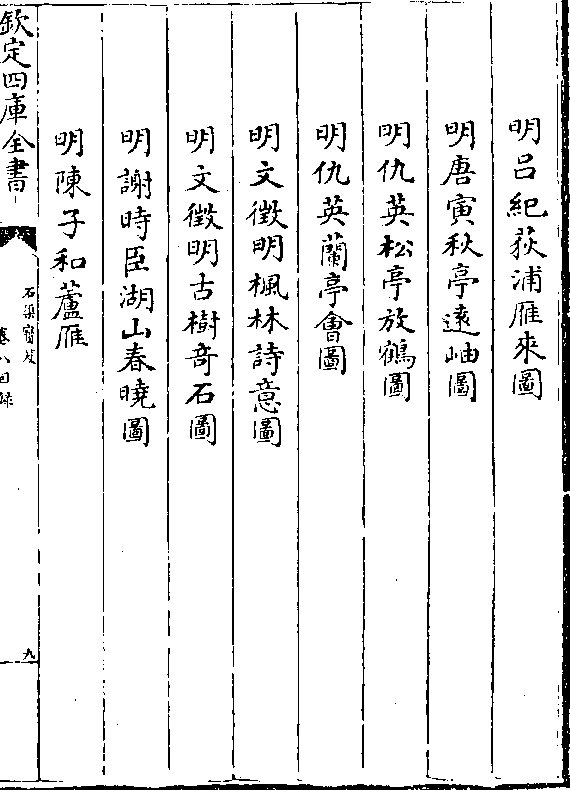 明呂紀荻浦雁來圖
明唐寅秋亭遠岫圖
明仇英松亭放鶴圖
明仇英蘭亭會圖
明文徴明楓林詩意圖
明文徴明古樹竒石圖
明謝時臣湖山春曉圖
明陳子和蘆雁
欽定四庫全書
石渠寶笈
卷八目録
九